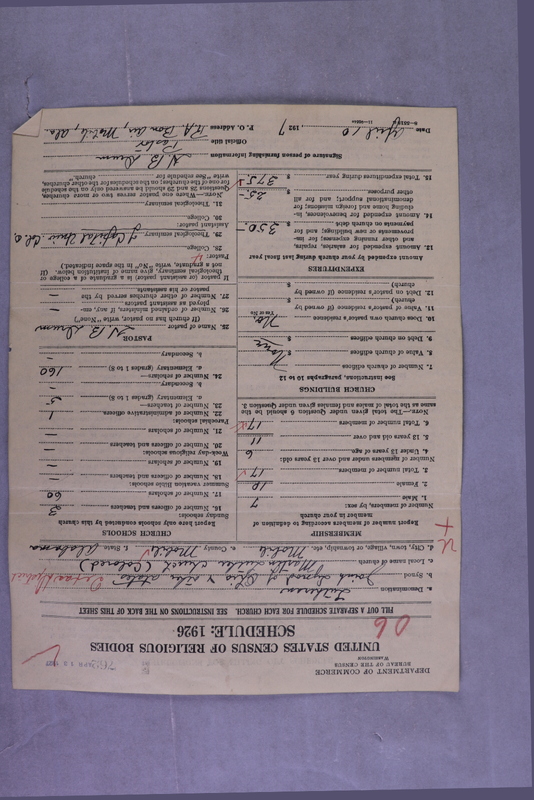 DEPARTMENT OF COMMERCE
BUREAU OF THE CENSUS
WASHINGTON
UNITED STATES CENSUS OF RELIGIOUS BODIES
SCHEDULE: 1926
06
FILL OUT A SEPARATE SCHEDULE FOR EACH CHURCH. SEE INSTRUCTIONS ON THE BACK OF THIS SHEET
a. Denomination Lutheran
b. Synod Joint Synod of Ohio & other states
c. Local name of church Martin Luther church (Colored)
d. City, town, village, or township, etc. Mobile e. County Mobile f. State Alabama
MEMBERSHIP
Report number of members according to definition of member in your church
Number of members, by sex:
1. Male 7
2. Female 10
3. Total number of members 17
Number of members under and over 13 years old:
4. Under 13 years of age 6
5. 13 years old and over 11
6. Total number of members 17
NOTE.—The total given under Question 6 should be the same as the total of males and females given under Question 3.
CHURCH BUILDINGS
See instructions, paragraphs 10 to 12
7. Number of church edifices
8. Value of church edifices $ None
9. Debt on church edifices $
10. Does church own pastor's residence No
Yes or No
11. Value of pastor's residence (if owned by church) $
12. Debt on pastor's residence (if owned by church) $
EXPENDITURES
Amount expended by your church during last fiscal year
13. Amount expended for salaries, repairs, and other running expenses; for improvements or new buildings; and for payments on church debt $ 350.
14. Amount expended for benevolences, including home and foreign missions; for denominational support; and for all other purposes $ 25.
15. Total expenditures during year $ 375
CHURCH SCHOOLS
Report here only schools conducted by this church
Sunday schools:
16. Number of officers and teachers 3
17. Number of scholars 60
Summer vacation Bible schools:
18. Number of officers and teachers —
19. Number of scholars —
Week-day religious schools:
20. Number of officers and teachers —
21. Number of scholars —
Parochial schools:
22. Number of administrative officers 1
23. Number of teachers—
a. Elementary (grades 1 to 8) 5
b. Secondary —
24. Number of scholars—
a. Elementary (grades 1 to 8) 160
b. Secondary —
PASTOR
25. Name of pastor
(If church has no pastor, write "None")
26. Number of ordained ministers, if any, employed as assistant pastors —
27. Number of other churches served by the pastor or his assistants —
If pastor (or assistant pastor) is a graduate of a college or theological seminary, give name of institution below. (If not a graduate, write "No" in the space indicated.)
Pastor:
28. College
29. Theological seminary Capital Univ. Col. O
Assistant pastor:
30. College
31. Theological seminary
NOTE.—Where one pastor serves two or more churches, Questions 28 and 29 should be answered only on the schedule for one of the churches; on the schedules for the other churches, write "See schedule for church."
Signature of person furnishing information
Official title Pastor
Date April 10, 1927 P. O. Address Bon air, Mobile, Ala.